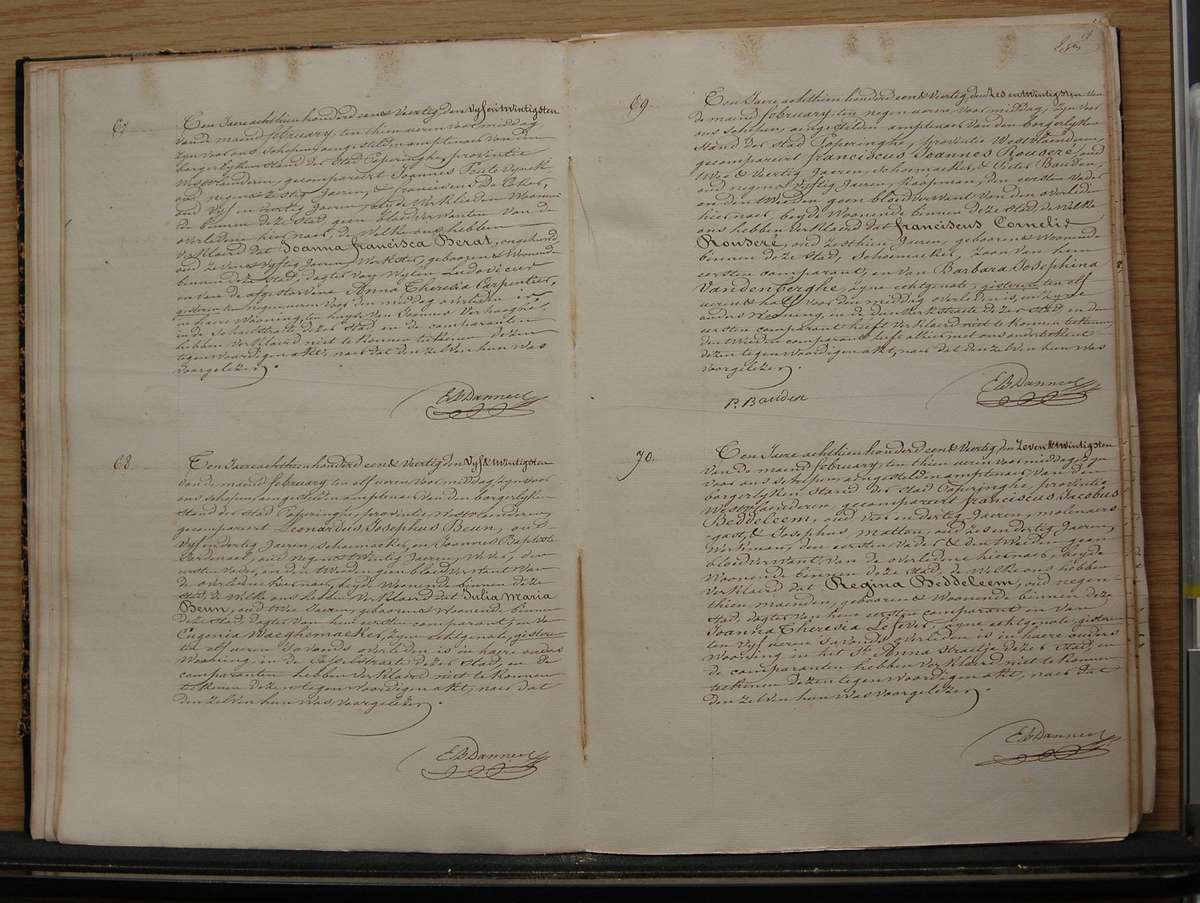 67.
Ten Jaere achthien honderd een & Veertig den Vyf en twintigsten
van de maend february, ten thien ueren voor middag
zyn voor ons schepen, aengestelden amptenaer van den
borgerlyken Stand der Stad Poperinghe, provintie
Westvlanderen, gecompareert Joannes
oud negen & zestig Jaeren, & franciscus De Coker,
oud Vyf en Veertig Jaeren, beyde Werklieden Woonen
de binnen deze Stad, geen bloedverwanten van de
overledene hier naer, de Welke ons hebben
verklaerd dat Joanna francisca Berat, ongehuwd
oud zeven & vyftig Jaeren, Werkster, geboren & Woonende
binnen deze Stad, dogter van Wylen Ludovicus
en van de afgestorvene Anna Theresia Carpentier,
gisteren ten negen ueren voor den middag overleden is
in haere Wooning, ten huyze van Joannes Verhaeghe,
in de straete dezer Stad en de comparanten
hebben Verklaerd niet te konnen teekenen dezen
tegenwoordigen akt, naer dat den zelven hun Was
voorgelezen.
E B Danneel
68.
Ten Jaere achthien honderd een & Veertig den Vyf & twintigsten
van de maend february, ten elf ueren voor middag, zyn voor
ons schepen aengestelden amptenaer van den borgerlyken
Stand der Stad Poperinghe, provintie Westvlanderen,
gecompareert Leonardus Josephus Beun, oud
Vyf en dertig Jaeren, schoenmaeker, en Joannes Baptiste
Cardinael, oud negen & twintig Jaeren, Wever, den
eersten vader, en den tweeden geen bloedverwant van
de overledene hier naer, beyde Woonende binnen deze
Stad, de Welke ons hebben Verklaerd dat Julia Maria
Beun, oud twee Jaeren, geboren & Woonende binnen
deze Stad, dogter van hem eersten comparant, en van
Eugenia Waeghemaeker, zyne echtgenote, gisteren
ten elf ueren s'avonds overleden is in haere ouders
Wooning, in de Casselstraete dezer Stad, en de
comparanten hebben Verklaerd niet te konnen
teekenen dezen tegenwoordigen akt, naer dat
den zelven hun Was voorgelezen.
E B Danneel
69.
Ten Jaere achthien honderd een & Veertig den Zes en twintigsten van
de maend february, ten negen ueren voor middag, zyn voor
ons schepen, aengestelden amptenaer van den borgerlyken
Stand der Stad Poperinghe, provintie Westvlanderen,
gecompareert franciscus Joannes Rouseré, oud
twee & Veertig Jaeren, schoenmaeker, & Pieter Bauden,
oud negen & vyftig Jaeren, koopman, den eersten vader
en den tweeden geen bloedverwant van den overleden
hier naer, beyde Woonende binnen deze Stad, de Welke
ons hebben Verklaerd dat franciscus Cornelis
Rouseré, oud zesthien Jaeren, geboren & Woonende
binnen deze Stad, schoenmaeker, zoon van hem
eersten comparant, en van Barbara Josephina
Vandenberghe, zyne echtgenote, gisteren ten elf
ueren & half voor den middag overleden is, in zyne
ouders Wooning, in de donkerstraete dezer Stad, en den
eersten comparant heeft Verklaerd niet te konnen teekenen,
den tweeden comparant heeft alleen met ons onderteekent
dezen tegenwoordigen akt, naer dat den zelven hun Was
voorgelezen.
P. Bauden
E B Danneel
70.
Ten Jaere achthien honderd een & Veertig, den Zeven & twintigsten
van de maend february, ten thien ueren voor middag, zyn
voor ons schepen aengestelden amptenaer van den
borgerlyken Stand der Stad Poperinghe, provintie
Westvlaenderen, gecompareert franciscus Jacobus
Beddeleem, oud en dertig Jaeren, molenaers
gast, & Josephus Matton, oud zes en dertig Jaeren,
Werkman, den eersten vader & den tweeden geen
bloedverwant van de overledene hier naer, beyde
Woonende binnen deze Stad, de Welke ons hebben
Verklaerd dat Regina Beddeleem, oud negen
thien maenden, geboren & Woonende binnen deze
Stad, dogter van hem eersten comparant en van
Joanna Theresia Lefever, zyne echtgenote, gisteren
ten Vyf ueren s'avonds overleden is in haere ouders
Wooning in het St. Anna straetje dezer Stad, en
de comparanten hebben Verklaerd niet te konnen
teekenen dezen tegenwoordigen akt, naer dat
den zelven hun Was voorgelezen.
E B Danneel